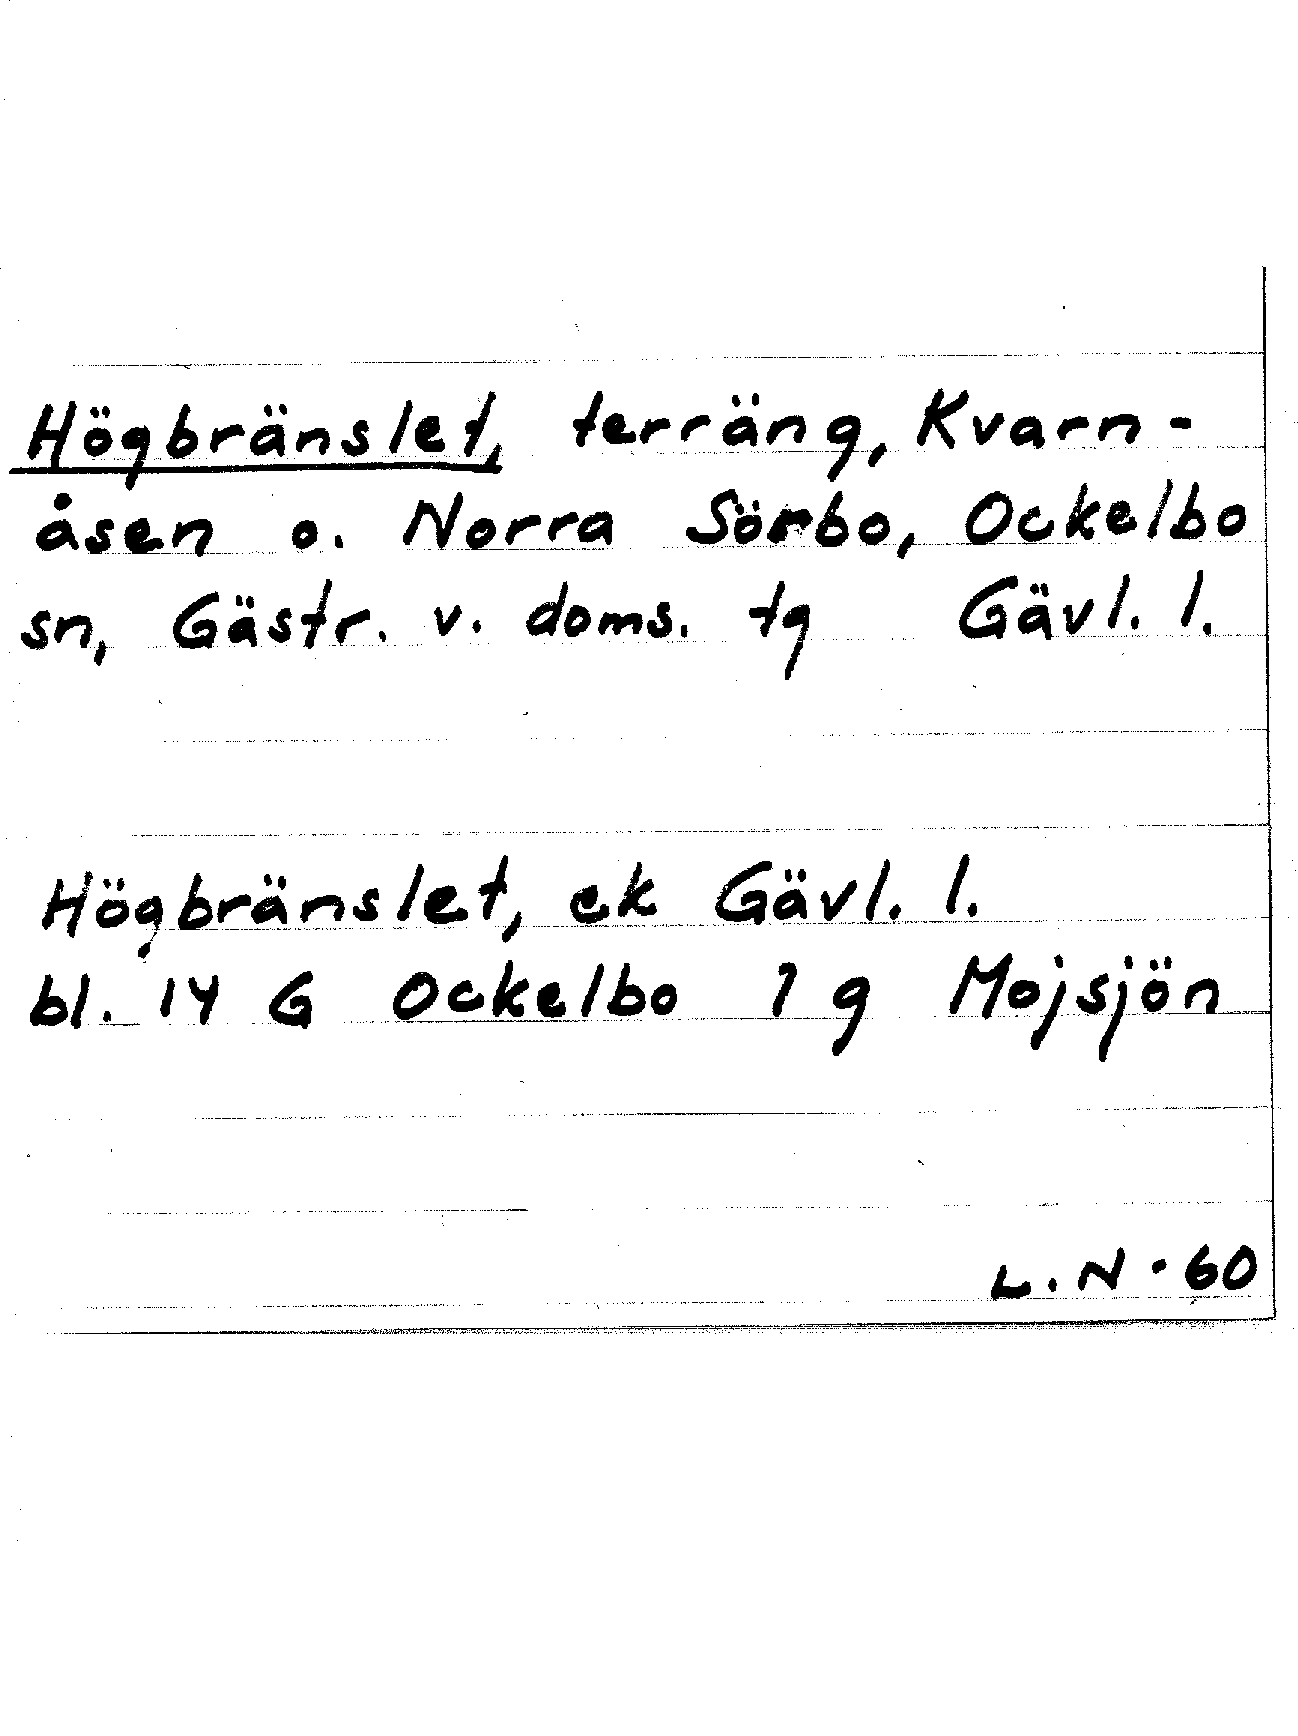 Högbränslet, terräng, Kvarn-
åsen o. Norra Sörbo, Ockelbo
sn, Gästr. v. doms. tg Gävl. l.
Högbränslet, ek Gävl. l.
bl. 14 G Ockelbo 7 g Mojsjön
L.N. 60